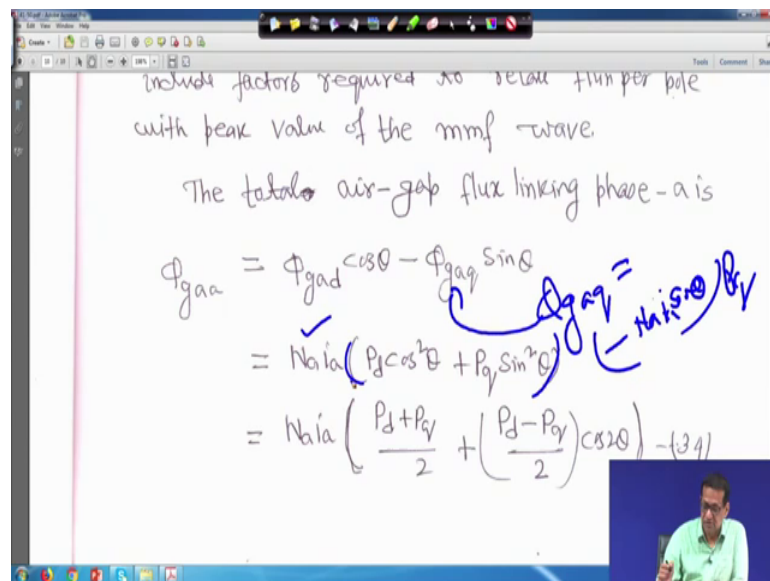 Create
Tools Comment
include factors required to relate flux per pole
with peak value of the mmf wave.
The total air-gap flux linking phase-a is
Φgaa = Φgad cosθ − Φgaq sinθ
Φgaq = (−Naia sinθ) Pq
= Naia (Pd cos²θ + Pq sin²θ)
= Naia ( (Pd+Pq)/2 + ((Pd−Pq)/2) cos2θ ) -(34)